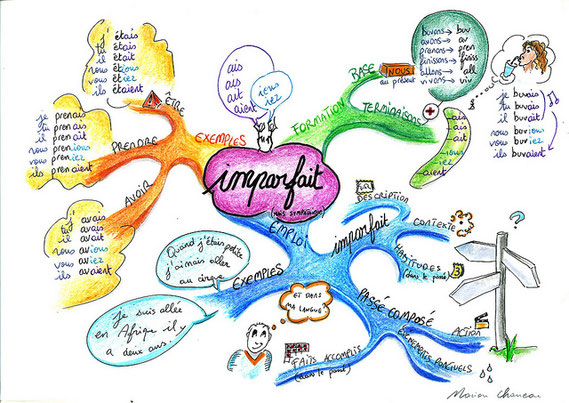 imparfait
(mais sympathique)
ais
ais
ait
aient
ions
iez
EXEMPLES
ÊTRE
j' étais
tu étais
il était
nous étions
vous étiez
ils étaient
PRENDRE
je prenais
tu prenais
il prenait
nous prenions
vous preniez
ils prenaient
AVOIR
j' avais
tu avais
il avait
nous avions
vous aviez
ils avaient
FORMATION
BASE
NOUS
au présent
buvons → buv
avons → av
prenons → pren
finissons → finiss
allons → all
vivons → viv
TERMINAISONS
ais
ais
ait
ions
iez
aient
je buvais
tu buvais
il buvait
nous buvions
vous buviez
ils buvaient
EMPLOI
imparfait
DESCRIPTION
CONTEXTE
HABITUDES
(dans le passé)
PASSÉ COMPOSÉ
ACTION
PONCTUELS
FAITS ACCOMPLIS
(dans le passé)
EXEMPLES
Quand j'étais petite
j'aimais aller
au cirque
je suis allée
en Afrique il y
a deux ans.
ET DANS
MA LANGUE?
?